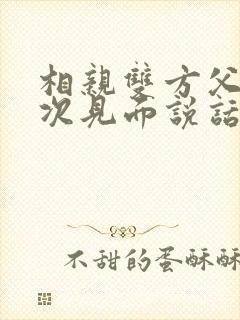 相親雙方父
次見而説話
不甜的蛋酥酥